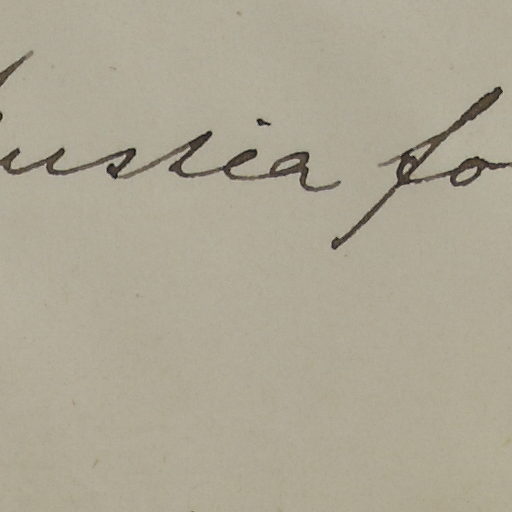 ussia fo